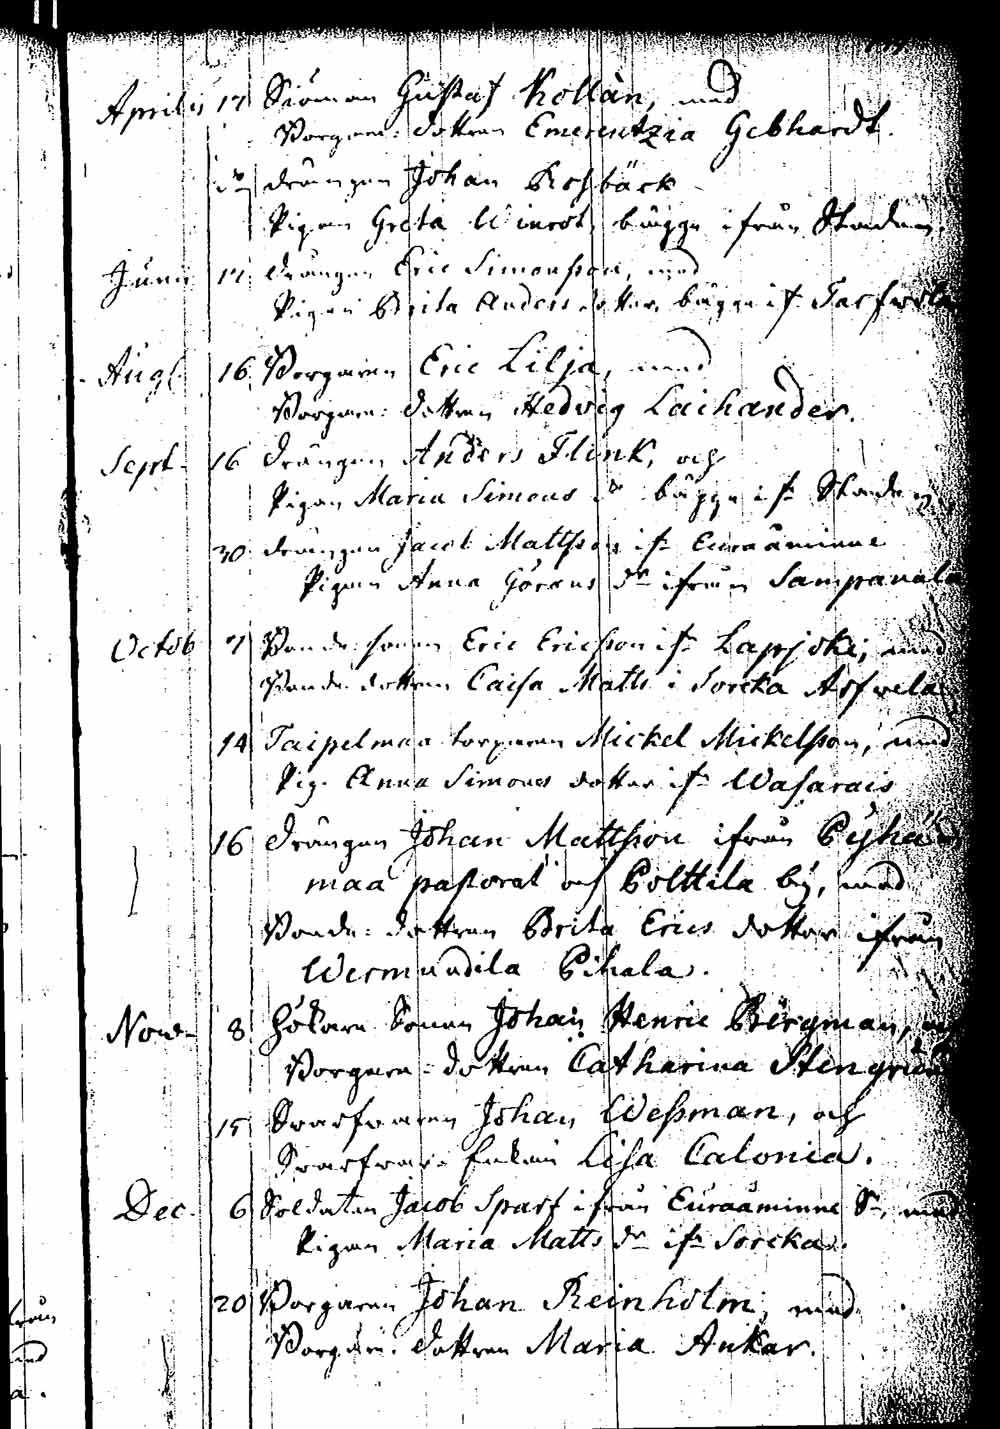 Aprilis 17 Siöman Gustaf Kollàn, med
Borgare: dottren Emerentzia Gebhardt.
do drängen Johan Rosbäck
Pigan Greta Winrot, bägge ifrån Staden.
Junii 17 drängen Eric Simonsson, med
Pigan Brita Anders dotter, bägge if.
Aug. 16 Borgaren Eric Lilja, med
Borgare: dottren Hedvig Laihander.
Sept. 16 drängen Anders Flink, och
Pigan Maria Simons dr bägge ifr Staden
30 drängen Jacob Mattsson ifr Euraäminne
Pigan Anna Görans dr ifrån Sampanala
Octob 7 Bonde sonen Eric Ericsson ifr Lapijoki, med
Bonde dottren Caisa Matts i Sorcka Arfwela
14 Taipelmaa torparen Mickel Mickelsson, med
Pig. Anna Simons dotter ifr Wasarais
16 drängen Johan Mattsson ifrån Pyhä
maa pastorat och Polttila by, med
Bonde: dottren Brita Erics dotter ifrån
Wermundila Pihala.
Nov. 8 Hökare Sonen Johan Henric Bergman, och
Borgare: dottren Catharina
15 Swarfwaren Johan Wessman, och
Swarfware Enkan Lisa Calonia.
Dec. 6 Soldaten Jacob Sparf ifrån Euraäminne Sn, med
Pigan Maria Matts dr ifr Sorcka.
20 Borgaren Johan Reinholm, med
Borgare: dottren Maria Ankar.